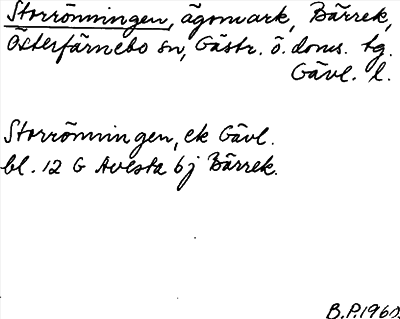 Storrönningen, ägomark, Bärrek,
Österfärnebo sn, Gästr. ö. doms. tg.
Gävl. l.
Storrönningen, ek Gävl.
bl. 12 G Avesta 6j Bärrek.
B.P. 1960.